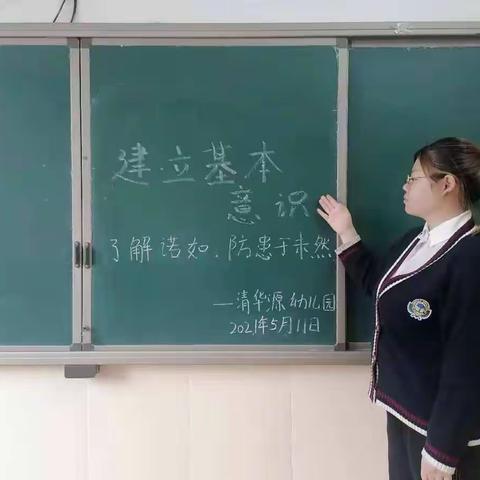 建立基本
意识
了解诺如、防患于未然
—清华源幼儿园
2021年5月11日